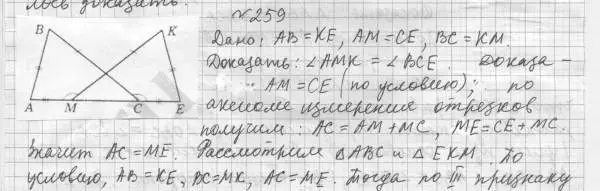 лось доказать.
N259
B K
A M C E
Дано: AB = KE, AM = CE, BC = KM.
Доказать: ∠AMK = ∠BCE. Доказа-
AM = CE (по условию); по
аксиоме измерения отрезков
получим: AC = AM + MC, ME = CE + MC.
Значит AC = ME. Рассмотрим △ABC и △EKM. По
условию, AB = KE, BC = MK, AC = ME. Тогда по III признаку